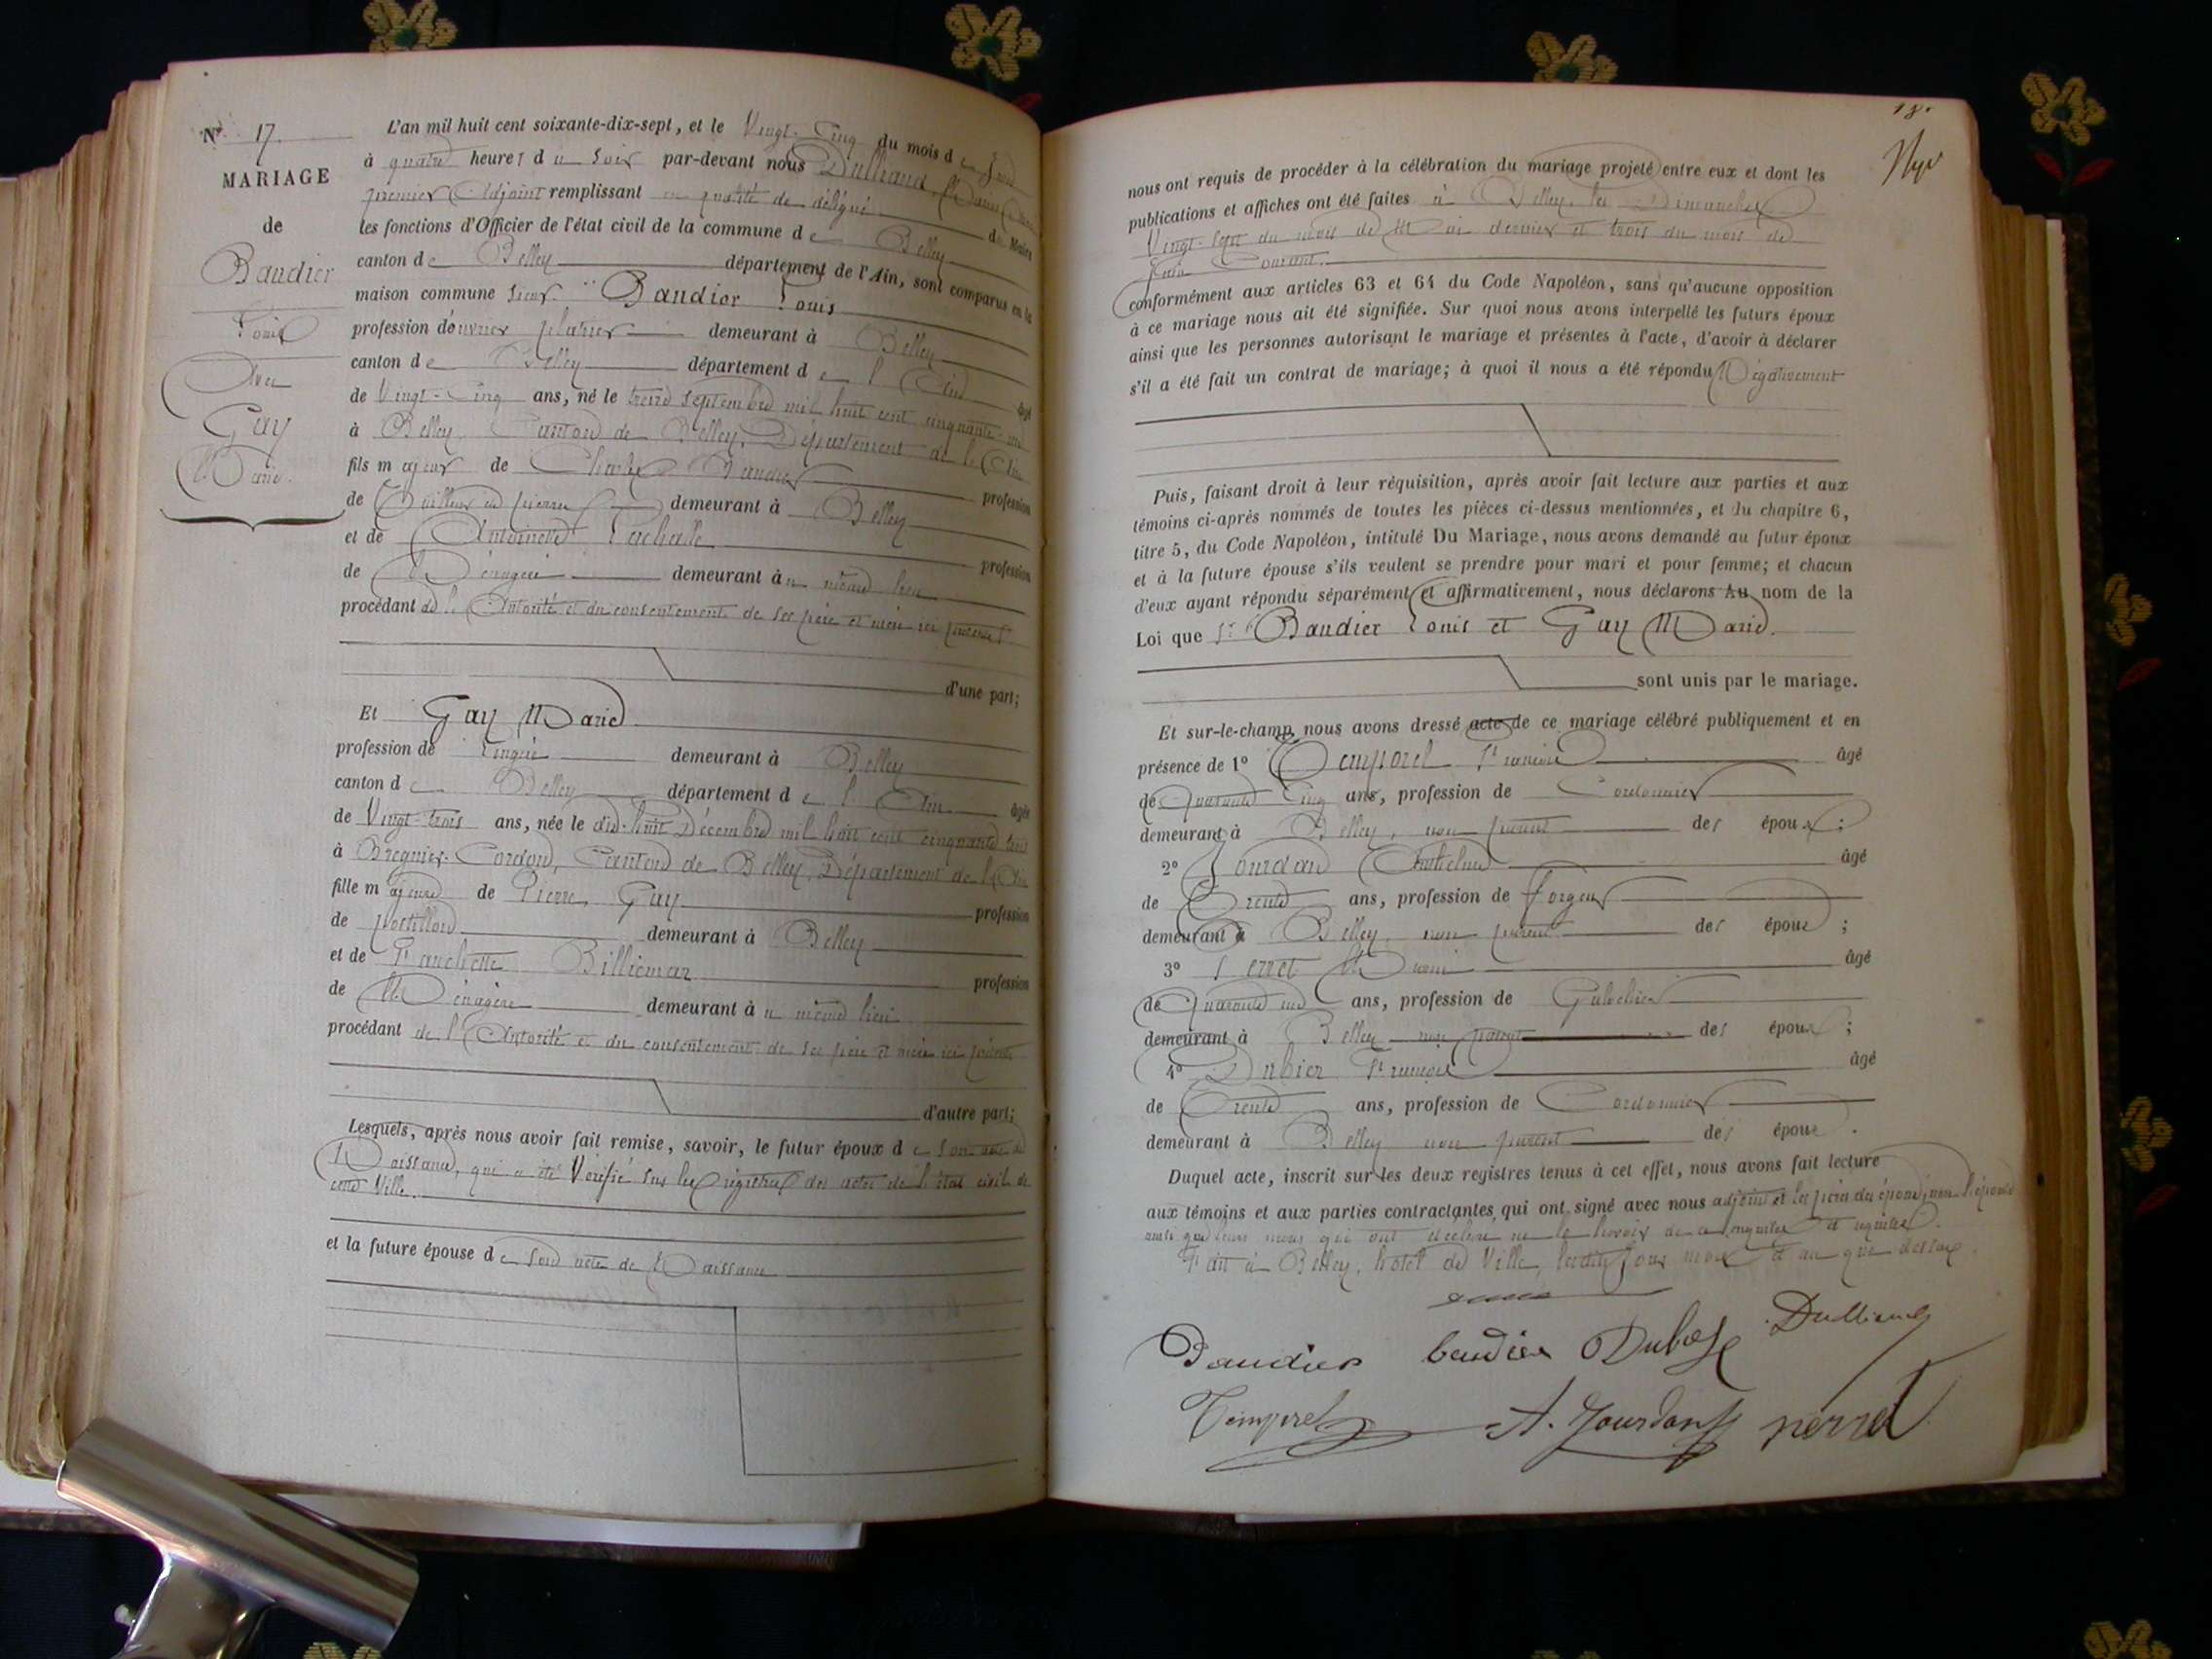 N° 17.
MARIAGE
de
Baudier
Louis
Avec
Gay
Marie.
L'an mil huit cent soixante-dix-sept, et le Vingt-Cinq du mois de Juin
à quatre heures du soir par-devant nous Dulliand,
premier Adjoint remplissant en qualité de délégué du Maire
les fonctions d'Officier de l'état civil de la commune de Belley
canton de Belley département de l'Ain, sont comparus en la
maison commune sieur Baudier Louis
profession d'ouvrier plâtrier demeurant à Belley
canton de Belley département de l'Ain âgé
de Vingt-Cinq ans, né le treize septembre mil huit cent cinquante-un
à Belley, Canton de Belley, Département de l'Ain
fils majeur de Charles Baudier profession
de Tailleur de pierres demeurant à Belley
et de Antoinette profession
de Ménagère demeurant au même lieu
procédant de l'Autorité et du consentement de ses père et mère ici présents
d'une part;
Et Gay Marie
profession de Lingère demeurant à Belley
canton de Belley département de l'Ain âgée
de Vingt-trois ans, née le dix-huit Décembre mil huit cent cinquante trois
à Bregnier-Cordon, Canton de Belley, Département de l'Ain
fille majeure de Pierre Gay profession
de postillon demeurant à Belley
et de Fanchette Billiemaz profession
de Ménagère demeurant au même lieu
procédant de l'Autorité et du consentement de ses père et mère ici présents
d'autre part;
Lesquels, après nous avoir fait remise, savoir, le futur époux de son acte de
Naissance, qui a été Vérifié sur les régistres des actes de l'état civil de
cette Ville.
et la future épouse de son acte de Naissance
18.
nous ont requis de procéder à la célébration du mariage projeté entre eux et dont les
publications et affiches ont été faites à Belley, les Dimanches
Vingt-sept du mois de Mai dernier et trois du mois de
Juin Courant.
conformément aux articles 63 et 64 du Code Napoléon, sans qu'aucune opposition
à ce mariage nous ait été signifiée. Sur quoi nous avons interpellé les futurs époux
ainsi que les personnes autorisant le mariage et présentes à l'acte, d'avoir à déclarer
s'il a été fait un contrat de mariage; à quoi il nous a été répondu Négativement
Puis, faisant droit à leur réquisition, après avoir fait lecture aux parties et aux
témoins ci-après nommés de toutes les pièces ci-dessus mentionnées, et du chapitre 6,
titre 5, du Code Napoléon, intitulé Du Mariage, nous avons demandé au futur époux
et à la future épouse s'ils veulent se prendre pour mari et pour femme; et chacun
d'eux ayant répondu séparément et affirmativement, nous déclarons Au nom de la
Loi que Baudier Louis et Gay Marie.
sont unis par le mariage.
Et sur-le-champ nous avons dressé acte de ce mariage célébré publiquement et en
présence de 1° Temporel François âgé
de Quarante Cinq ans, profession de Cordonnier
demeurant à Belley, non parent des époux;
2° Jourdan Anthelme âgé
de Trente ans, profession de forgeur
demeurant à Belley, non parent des époux;
3° Perret âgé
de Quarante un ans, profession de
demeurant à Belley non parent des époux;
4° François âgé
de Trente ans, profession de Cordonnier
demeurant à Belley non parent des époux.
Duquel acte, inscrit sur les deux registres tenus à cet effet, nous avons fait lecture
aux témoins et aux parties contractantes qui ont signé avec nous adjoint et les pères des époux, non l'épouse
ainsi que leurs mères qui ont déclaré ne le savoir de ce enquises et requises.
Fait à Belley, hôtel de Ville, lesdits jour mois et an que dessus.
Baudier baudier Dulliand
Temporel A. Jourdan perret